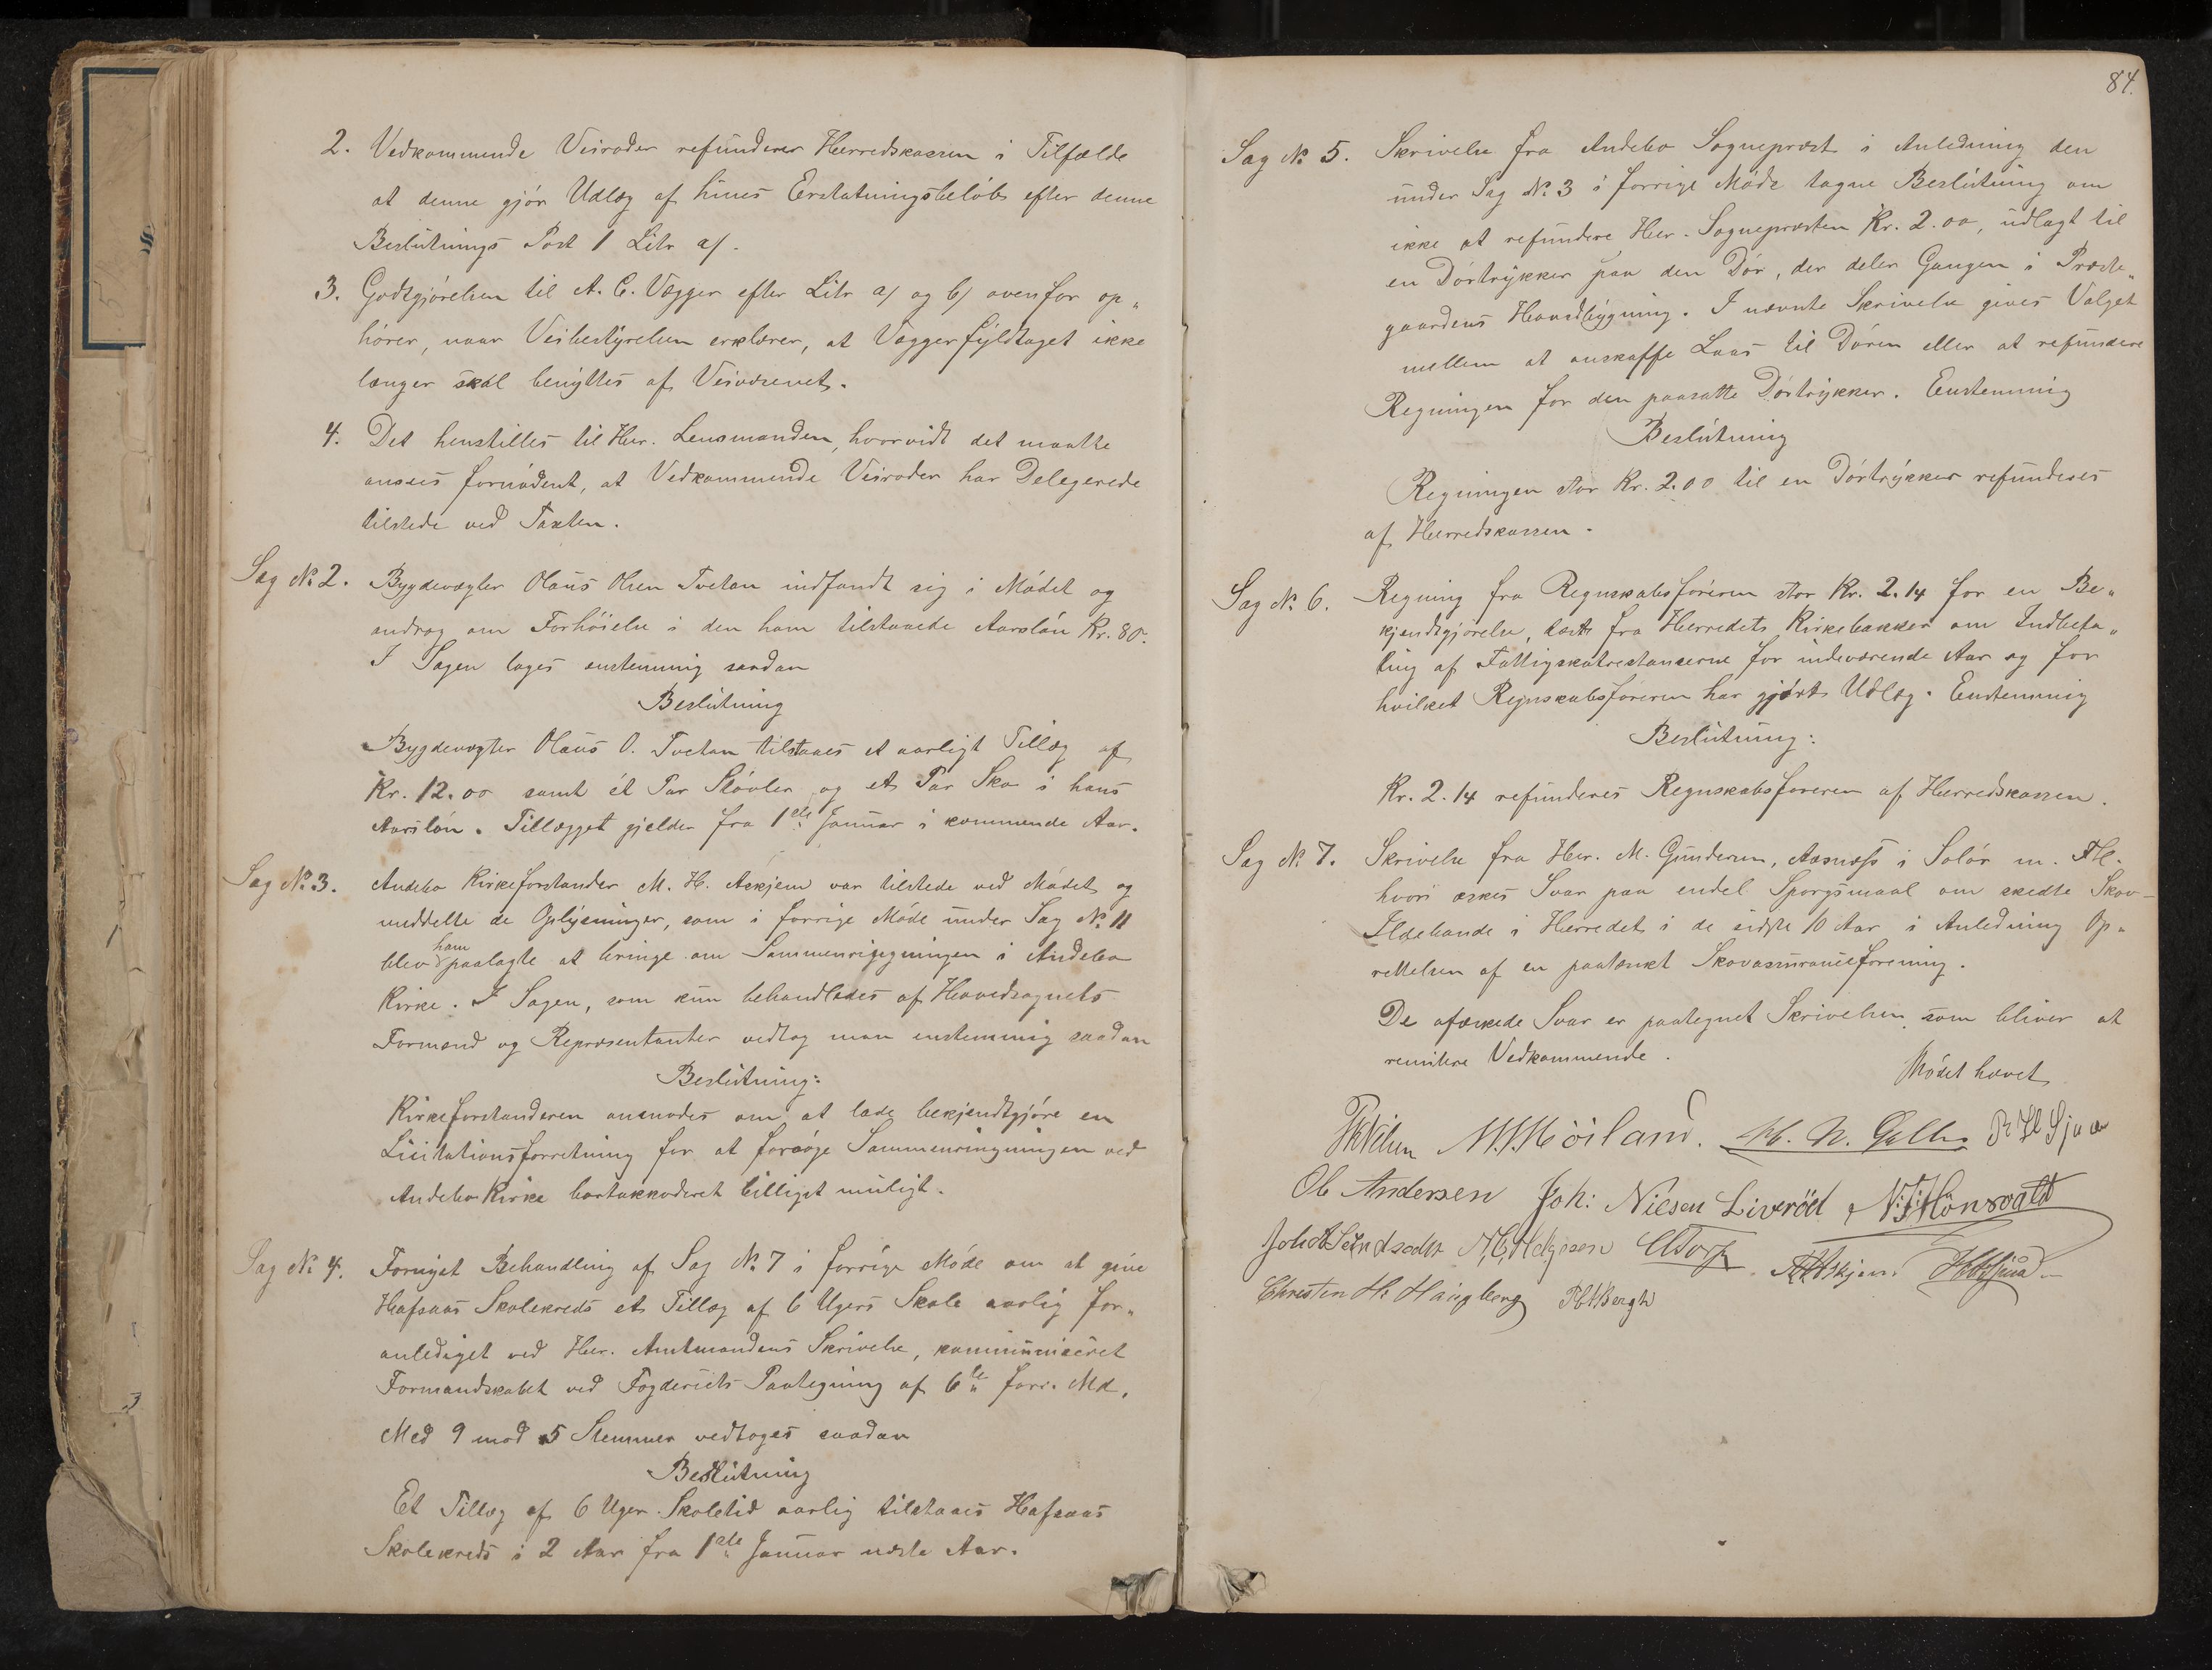 2. Vedkommende Veiroder refunderer Herredskassen i Tilfælde
at denne gjør Udlæg af hines Erstatningsbeløb efter denne
Beslutnings Post 1 Litr a/.
3. Godtgjørelsen til A. C. Vegger efter Litr a/ og b/ ovenfor op„
hører, naar Veibestyrelsen erklærer, at Veggerfyldtaget ikke
længer skal benyttes af Veivæsenet.
4. Det henstilles til Hr. Lensmanden, hvorvidt det maatte
ansees fornødent, at Vedkommende Veiroder har Delegerede
tilstede ved Taxten.
Sag No 2. Bygdevægter Olaus Olsen Tvetan indfandt sig i Mødet og
androg om Forhøielse i den ham tilstaaede Aarsløn Kr. 80.
I Sagen toges enstemmig saadan
Beslutning
Bygdevægter Olaus O. Tvetan tilstaaes et aarligt Tillæg af
Kr. 12.00 samt ét Par Støvler og et Par Sko i hans
Aarsløn. Tillægget gjelder fra 1ste Januar i kommende Aar.
Sag No 3. Andebo Kirkeforstander M. H. Askjem var tilstede ved Mødet og
meddelte de Oplysninger, som i forrige Møde under Sag No 11
blev ham paalagte at bringe om Sammenringningen i Andebo
Kirke. I Sagen, som kun behandledes af Hovedsognets
Formænd og Repræsentanter vedtog man enstemmig saadan
Beslutning:
Kirkeforstanderen anmodes om at lade bekjendtgjøre en
Licitationsforretning for at forsøge Sammenringningen ved
Andebo Kirke bortakkorderet billigst muligt.
Sag No 4. Fornyet Behandling af Sag No 7 i forrige Møde om at give
Hafsaas Skolekreds et Tillæg af 6 Ugers Skole aarlig for„
anlediget ved Hr. Amtmandens Skrivelse, kommuniceret
Formandskabet ved Fogderiets Paategning af 6te forr. Md.
Med 9 mod 5 Stemmer vedtoges saadan
Beslutning
Et Tillæg af 6 Uger Skoletid aarlig tilstaaes Hafsaas
Skolekreds i 2 Aar fra 1ste Januar næste Aar.
84.
Sag No 5. Skrivelse fra Andebo Sognepræst i Anledning den
under Sag No 3 i forrige Møde tagne Beslutning om
ikke at refundere Hr. Sognepræsten Kr. 2.00, udlagt til
en Dørtrykker paa den Dør, der deler Gangen i Præste„
gaardens Hovedbygning. I nævnte Skrivelse gives Valget
mellem at anskaffe Laas til Døren eller at refundere
Regningen for den paasatte Dørtrykker. Enstemmig
Beslutning
Regningen stor Kr. 2.00 til en Dørtrykker refunderes
af Herredskassen.
Sag No 6. Regning fra Regnskabsføreren stor Kr. 2.14 for en Be„
kjendtgjørelse, læst fra Herredets Kirkebakker om Indbeta„
ling af Fattigskatrestanserne for indeværende Aar og for
hvilket Regnskabsføreren har gjort Udlæg. Enstemmig
Beslutning:
Kr. 2.14 refunderes Regnskabsføreren af Herredskassen.
Sag No 7. Skrivelse fra Hr. M. Gundersen, Aasnæss i Solør m. Fl.
hvori æskes Svar paa endel Spørgsmaal om skedte Skov-
Ildebrande i Herredet i de sidste 10 Aar i Anledning Op„
rettelsen af en paatænkt Skovassuranceforening.
De afæskede Svar er paategnet Skrivelsen, som bliver at
remittere Vedkommende.
Mødet hævet
Møiland. H. N. Gallis
Ole Andersen Joh: Nilsen Liverød N: T: Hönsvald
M. C. Helgesen
Christen H. Haugberg Bergh